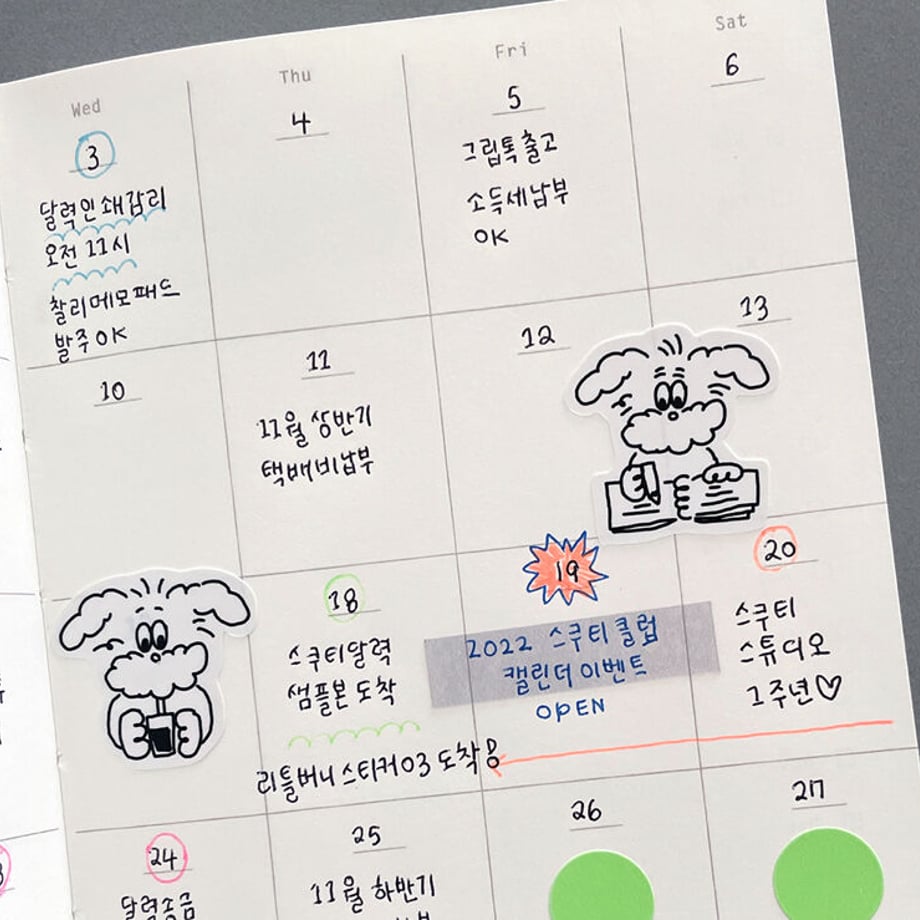 Wed
Thu
Fri
Sat
3
달력인쇄감리
오전 11시
찰리메모패드
발주 OK
4
5
그립톡출고
소득세납부
OK
6
10
11
11월 상반기
택배비납부
12
13
18
스쿠티달력
샘플본 도착
리틀버니스티커03 도착
19
2022 스쿠티클럽
캘린더이벤트
OPEN
20
스쿠티
스튜디오
1주년♡
24
달력송금
25
11월 하반기
26
27